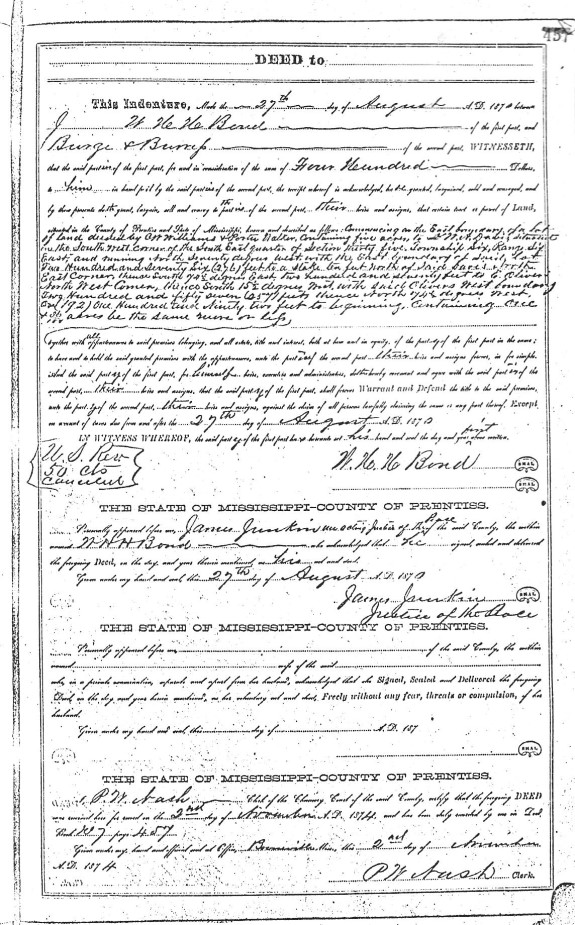 457
DEED to
This Indenture, Made the 27th day of August A.D. 1870 between
W. H. H. Bond of the first part, and
Burge & Burress of the second part, WITNESSETH,
that the said part of the first part, for and in consideration of the sum of Four Hundred Dollars,
to him in hand paid by the said parties of the second part, the receipt whereof is acknowledged, has granted, bargained, sold and conveyed, and
by these presents doth grant, bargain, sell and convey to the parties of the second part, their heirs and assigns, that certain tract or parcel of Land,
situated in the County of Prentiss and State of Mississippi, known and described as follows: Commencing on the East boundary of a lot
of land deeded by Williams & Porter Walker, Containing five acres, to situated
in the South West Corner of the South East quarter of Section thirty five, Township Six, Range Six
East, and running North Seventy degrees West with the East boundary of Said Lot
Two Hundred and Seventy Six (276) feet to a Stake ten feet North of Said North
East Corner, thence South degrees East two hundred and Seventy feet to
North West Corner, thence South 15½ degrees West with said West boundary
Two Hundred and fifty Seven (257) feet thence North 74½ degrees West
(192) One Hundred and Ninety two feet to beginning. Containing One
& acres be the same more or less
together with all appurtenances to said premises belonging, and all estate, title and interest, both at law and in equity, of the party of the first part in the same;
to have and to hold the said granted premises with the appurtenances, unto the part of the second part their heirs and assigns forever, in fee simple.
And the said party of the first part, for himself heirs, executors and administrators, doth hereby covenant and agree with the said part of the
second part, their heirs and assigns, that the said party of the first part, shall forever Warrant and Defend the title to the said premises,
unto the part of the second part, their heirs and assigns, against the claim of all persons lawfully claiming the same or any part thereof. Except
on account of taxes due from and after the 27th day of August A.D. 1870
IN WITNESS WHEREOF, the said party of the first part has hereunto set his hand and seal the day and year first above written.
U.S. Rev
50 cts
Canceled
W. H. H. Bond SEAL
SEAL
THE STATE OF MISSISSIPPI-COUNTY OF PRENTISS.
Personally appeared before me, James Junkin an acting Justice of the Peace of the said County, the within
named W H H Bond who acknowledged that he signed, sealed and delivered
the foregoing Deed, on the day and year therein mentioned, as his act and deed.
Given under my hand and seal, this 27th day of August A.D. 1870
James Junkin SEAL
Justice of the Peace
THE STATE OF MISSISSIPPI-COUNTY OF PRENTISS.
Personally appeared before me, of the said County, the within
named wife of the said
who, in a private examination, separate and apart from her husband, acknowledged that she Signed, Sealed and Delivered the foregoing
Deed, on the day and year therein mentioned, as her voluntary act and deed, Freely without any fear, threats or compulsion, of her
husband.
Given under my hand and seal, this day of A.D. 187
SEAL
THE STATE OF MISSISSIPPI-COUNTY OF PRENTISS.
I, P. W. Nash Clerk of the Chancery Court of the said County, certify that the foregoing DEED
was received for record on the 2nd day of November A.D. 1874, and has been duly entered by me in Deed
Book page 457
Given under my hand and official seal at Office, Booneville Miss, this 2nd day of November
A.D. 1874
P W Nash Clerk.